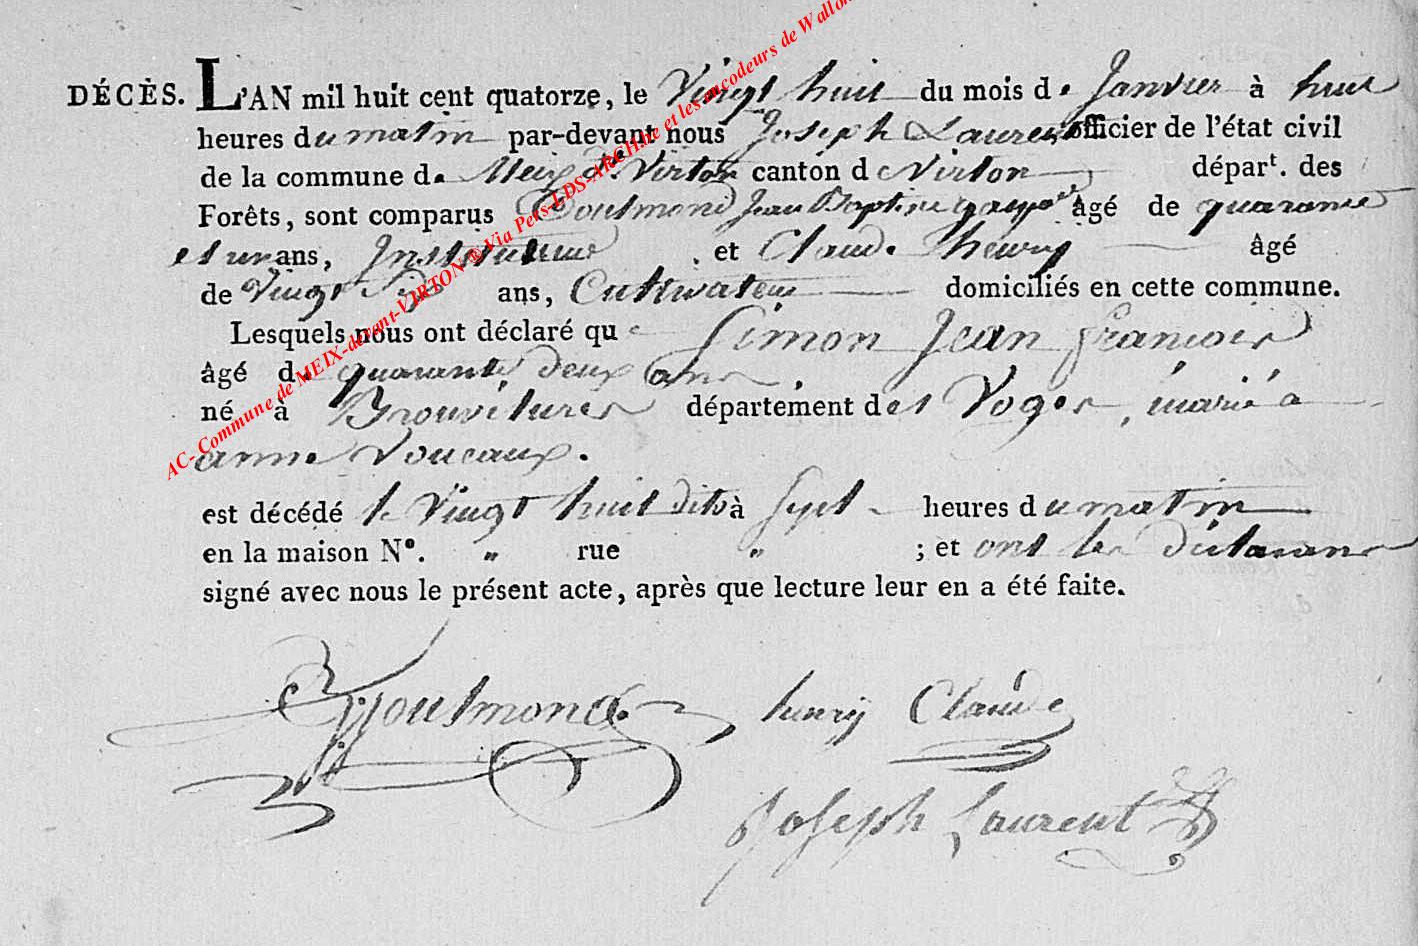 DÉCÈS. L'AN mil huit cent quatorze, le Vingt huit du mois de Janvier à huit
heures du matin par-devant nous Joseph Laurent officier de l'état civil
de la commune de Meix dt Virton canton de Virton dépar<sup>t</sup>. des
Forêts, sont comparus Goulmond Jean Baptiste âgé de quarante
et un ans, Instituteur et Claude henry âgé
de Vingt ans, Cultivateur domiciliés en cette commune.
Lesquels nous ont déclaré que Simon Jean françois
âgé de quarante deux ans
né à Brouvelures département des Voges, marié a
anne Voucaux.
est décédé le Vingt huit dito à sept heures du matin
en la maison N°. " rue " ; et ont les déclarans
signé avec nous le présent acte, après que lecture leur en a été faite.
Goulmond henry Claude
Joseph Laurent
AC- Commune de MEIX-devant-VIRTON ® Via Pers-LDS-ARCHbe et les encodeurs de Wallon